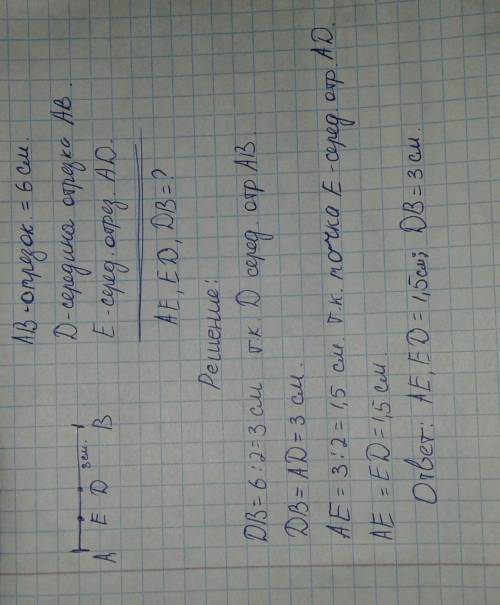 AB - отрезок. = 6 см.
D - середина отрезка AB.
E - серед. отрез. AD.
AE, ED, DB = ?
3 см.
A E D B
Решение:
DB = 6 : 2 = 3 см т.к. D серед. отр AB.
DB = AD = 3 см.
AE = 3 : 2 = 1,5 см т.к. точка E - серед. отр. AD.
AE = ED = 1,5 см.
Ответ: AE, ED = 1,5 см; DB = 3 см.